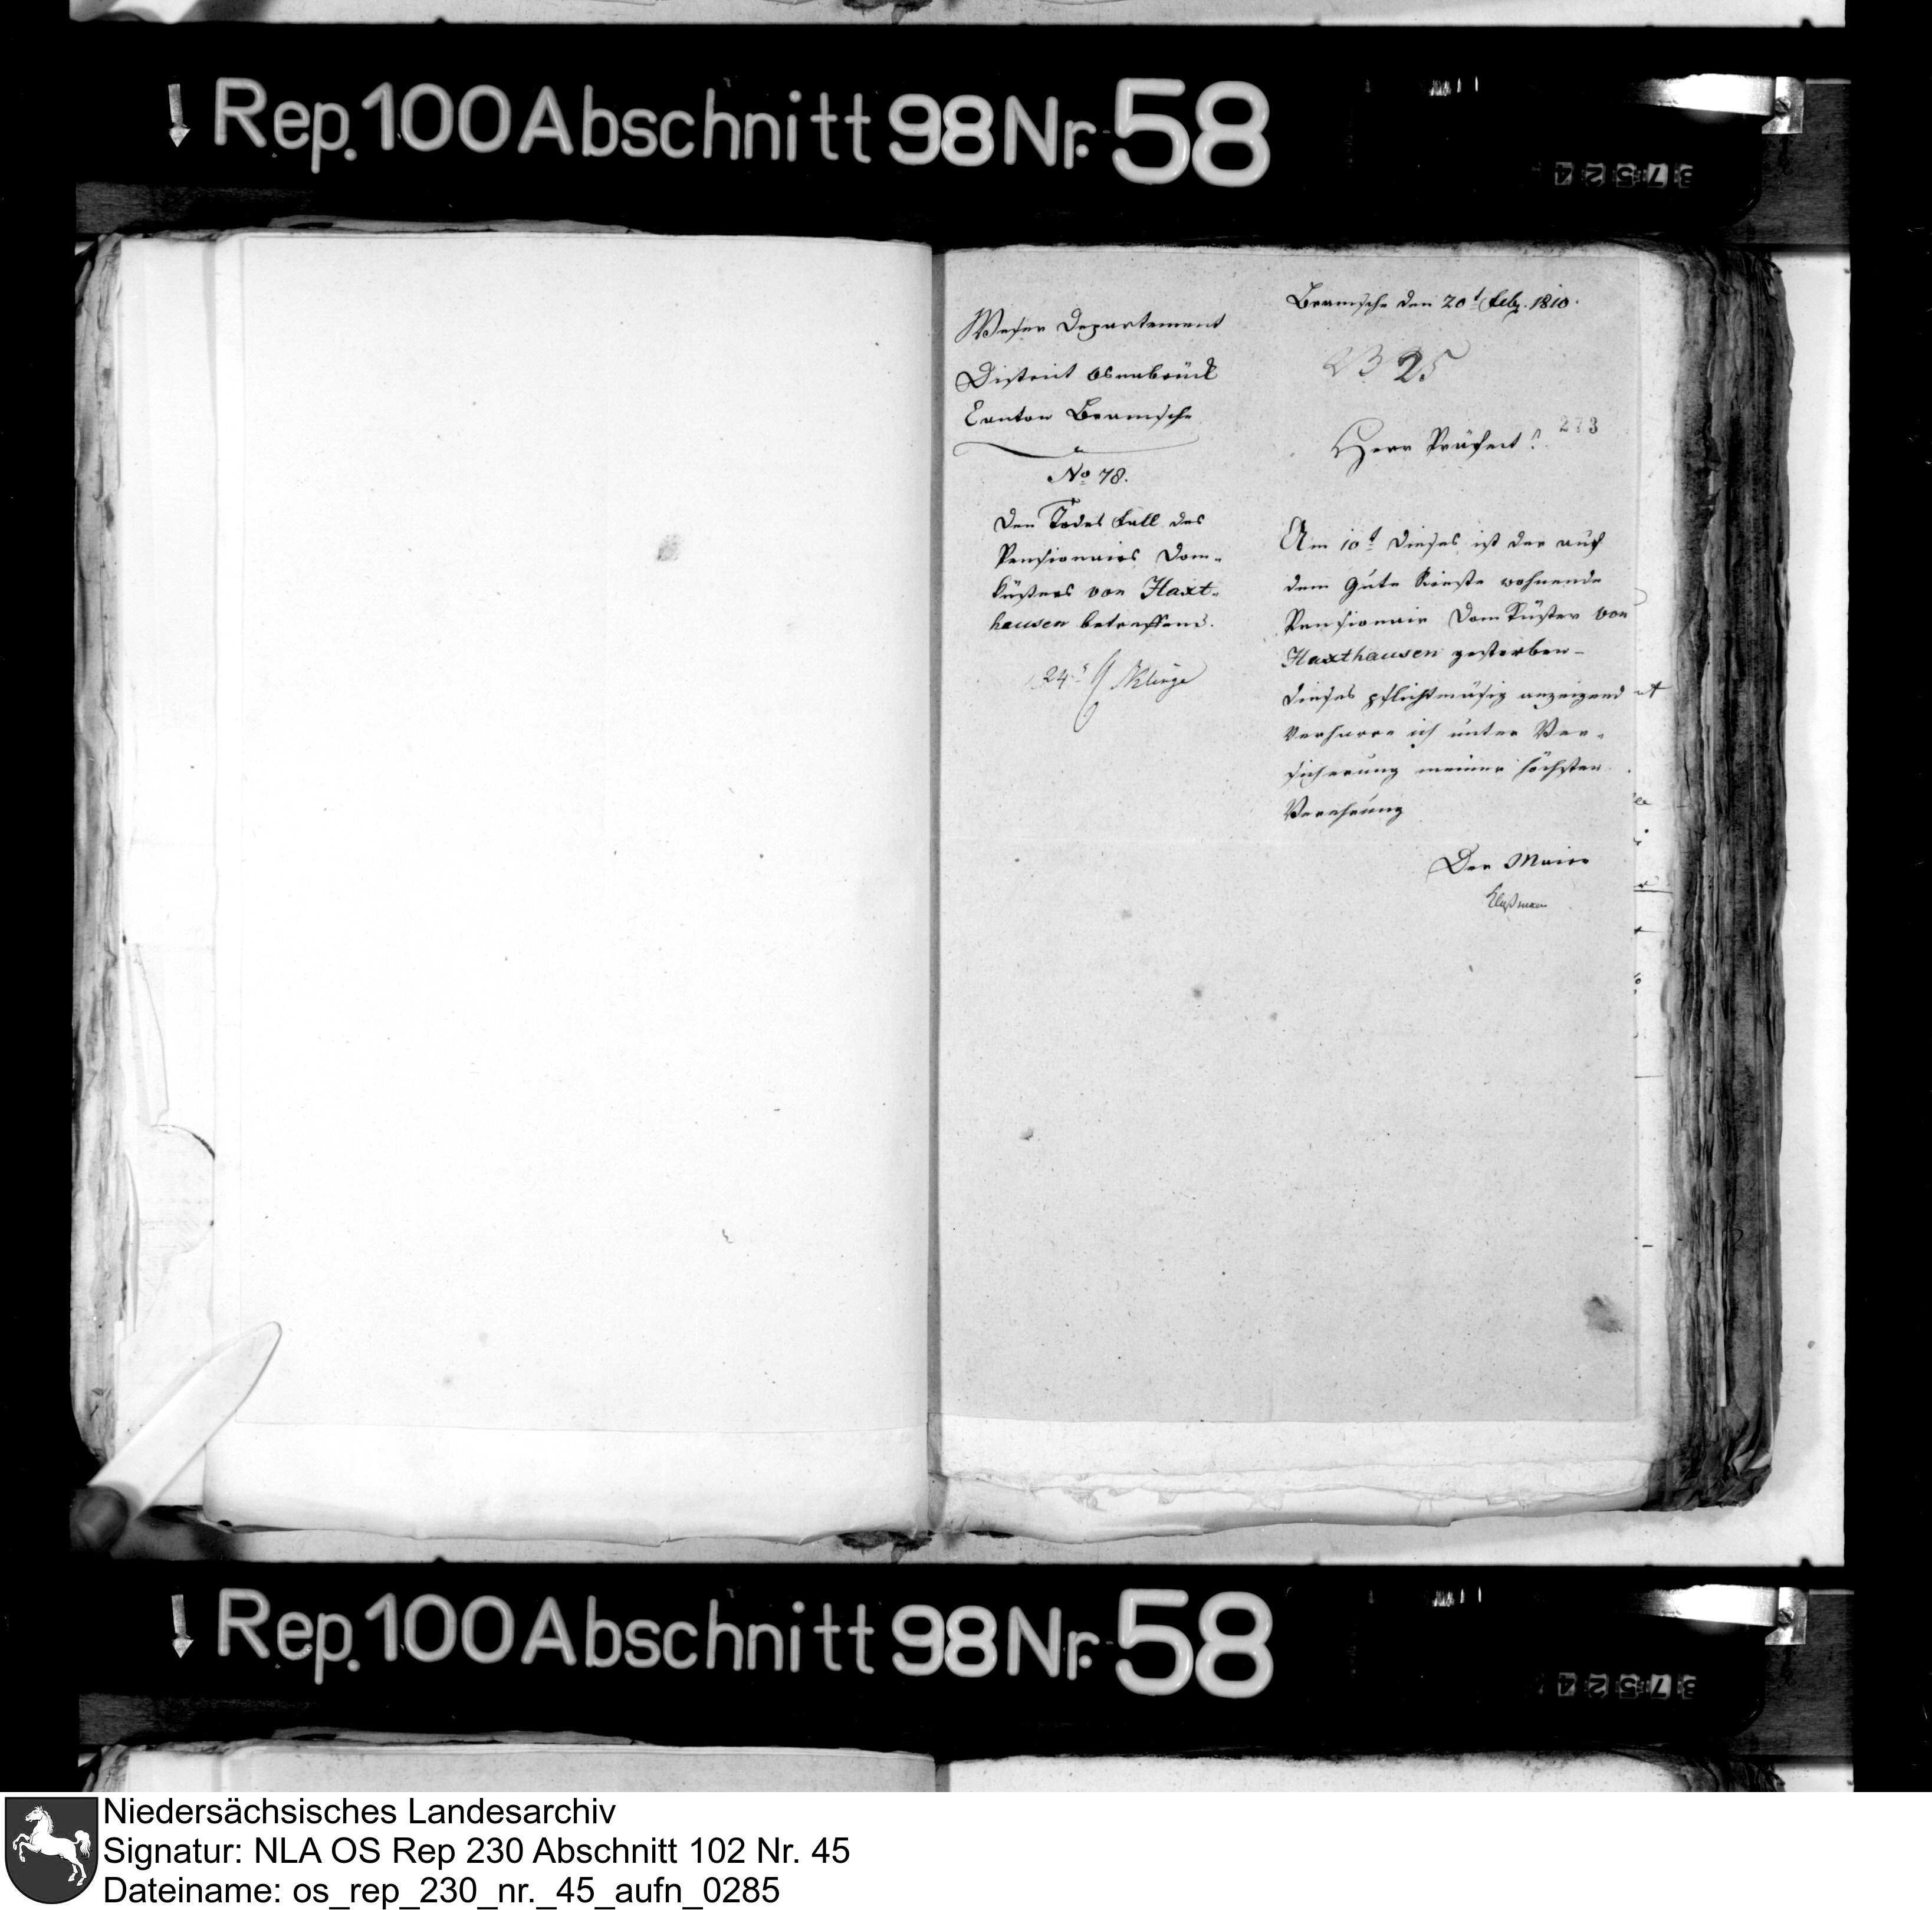 Rep. 100 Abschnitt 98 Nr. 58
37524
Weser Departement
District Osnabrück
Canton Bramsche
No 78.
Den Todes Fall des
Pensionairs Dom-
küsters von Haxt-
hausen betreffend.
24
Bramsche den 20t Feby. 1810.
2325
273
Herr Präfect!
Am 10t dieses ist der auf
dem Gute Rieste wohnende
Pensionair Dom Küster von
Haxthausen gestorben –
dieses pflichtmäsig anzeigend
verharre ich unter Ver-
sicherung meiner höchsten
Verehrung
Der Maire
Rep. 100 Abschnitt 98 Nr. 58
37524
Niedersächsisches Landesarchiv
Signatur: NLA OS Rep 230 Abschnitt 102 Nr. 45
Dateiname: os_rep_230_nr._45_aufn_0285